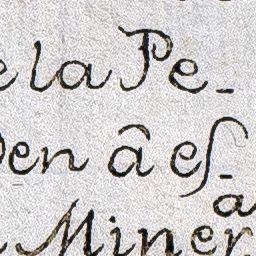 e la Pe-
den â eſ-
a
Miner